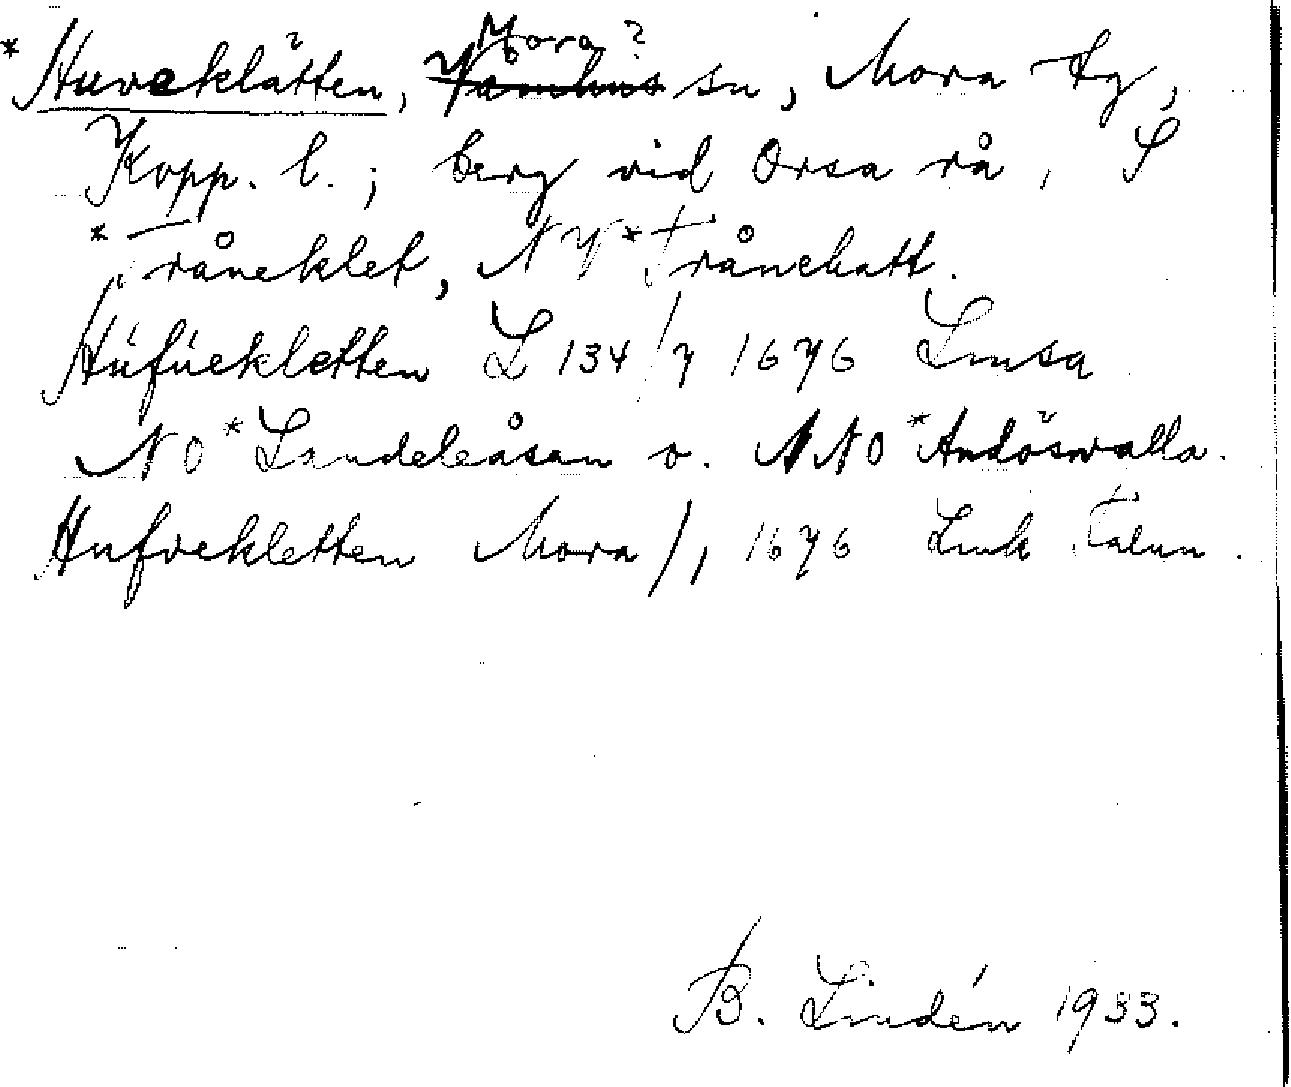 Mora?
*Huveklätten, Våmhus sn, Mora tg,
Kopp. l.; berg vid Orsa rå, S
*Tråneklet, NV *Trånehatt.
Húfúekletten L 134/7 1676 Lmsa
NO *Landeleåsan o. NNO *Andösvalla.
Hufvekletten Mora /, 1676 Lmk Falun.
B. Lindén 1933.